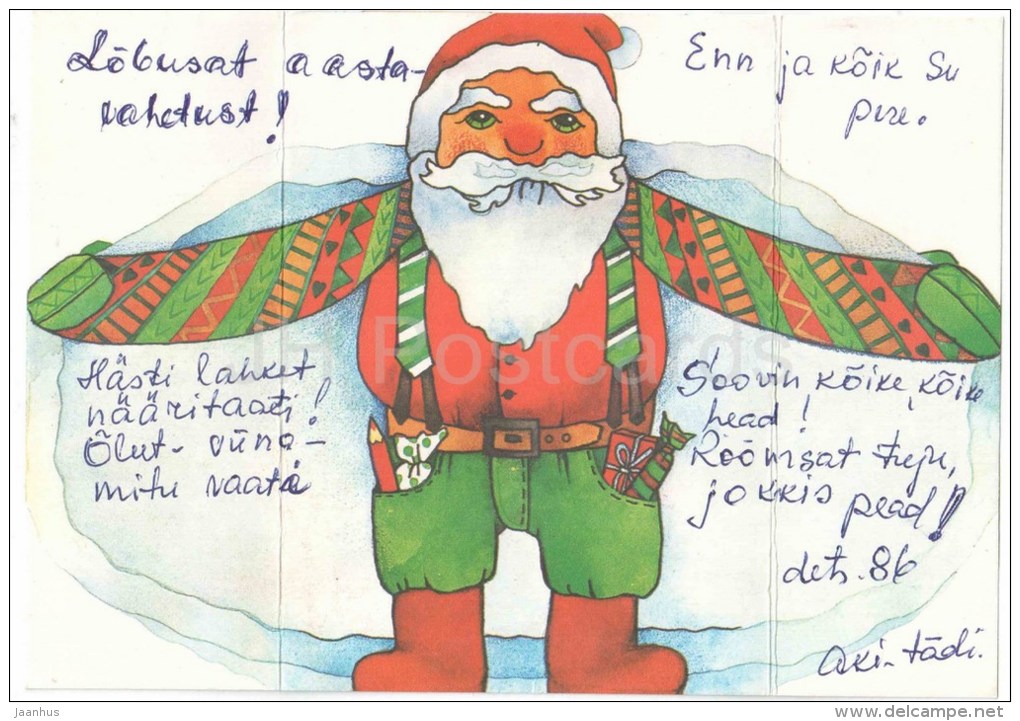 Lõbusat aasta-
vahetust!
Enn ja kõik Su
pere.
Hästi lahket
nääritaati!
Õlut- viina-
mitu vaata
Soovin, kõike, kõike
head!
Rõõmsat tuju,
jokkis
pead!
dets. 86
Aki-tädi.
JH Postcards
jaanhus
www.delcampe.net